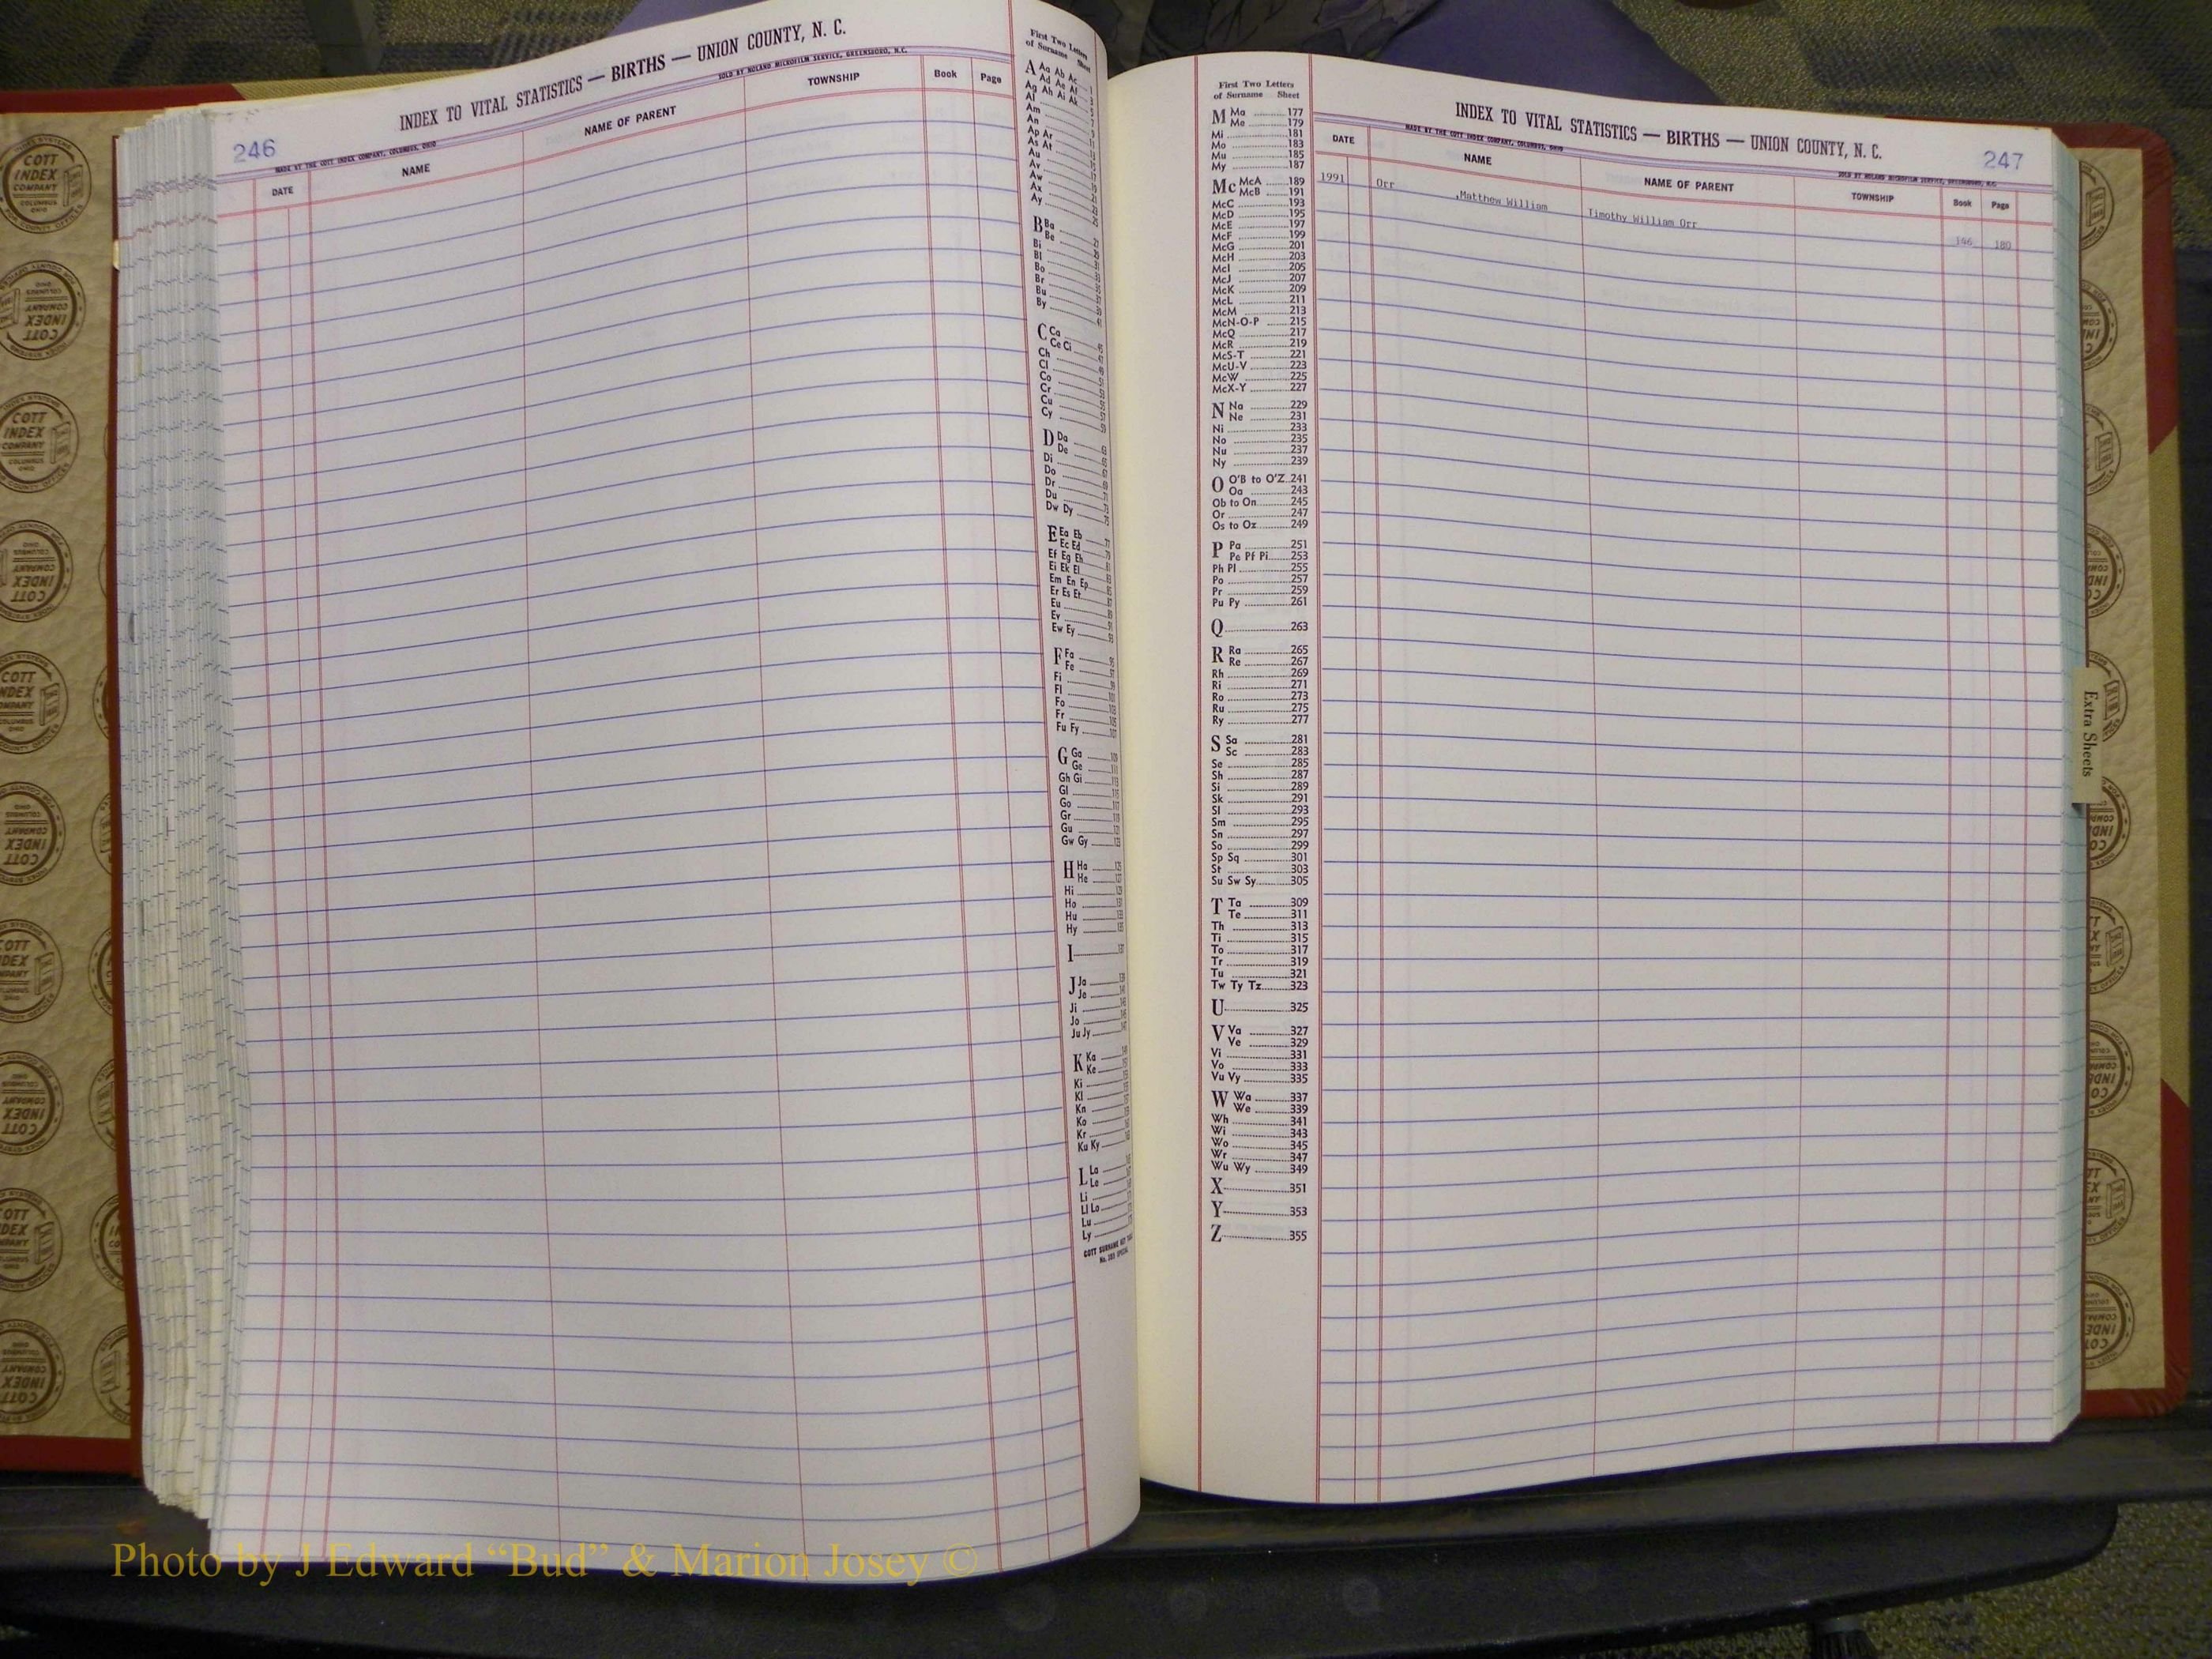 246
INDEX TO VITAL STATISTICS — BIRTHS — UNION COUNTY, N. C.
MADE BY THE COTT INDEX COMPANY, COLUMBUS, OHIO
SOLD BY NOLAND MICROFILM SERVICE, GREENSBORO, N.C.
DATE NAME NAME OF PARENT TOWNSHIP Book Page
First Two Letters
of Surname Sheet
A Aa Ab Ac
Ad Ae Af
Ag Ah Ai Ak
Al
Am
An
Ap Ar
As At
Au
Av
Aw
Ax
Ay
B Ba
Be
Bi
Bl
Bo
Br
Bu
By
C Ca
Ce Ci
Ch
Cl
Co
Cr
Cu
Cy
D Da
De
Di
Do
Dr
Du
Dw Dy
E Ea Eb
Ec Ed
Ef Eg Eh
Ei Ek El
Em En Ep
Er Es Et
Eu
Ev
Ew Ey
F Fa
Fe
Fi
Fl
Fo
Fr
Fu Fy
G Ga
Ge
Gh Gi
Gl
Go
Gr
Gu
Gw Gy
H Ha
He
Hi
Ho
Hu
Hy
I
J Ja
Je
Ji
Jo
Ju Jy
K Ka
Ke
Ki
Kl
Kn
Ko
Kr
Ku Ky
L La
Le
Li
Ll Lo
Lu
Ly
COTT SURNAME
First Two Letters
of Surname Sheet
M Ma 177
Me 179
Mi 181
Mo 183
Mu 185
My 187
Mc McA 189
McB 191
McC 193
McD 195
McE 197
McF 199
McG 201
McH 203
McI 205
McJ 207
McK 209
McL 211
McM 213
McN-O-P 215
McQ 217
McR 219
McS-T 221
McU-V 223
McW 225
McX-Y 227
N Na 229
Ne 231
Ni 233
No 235
Nu 237
Ny 239
O O'B to O'Z 241
Oa 243
Ob to On 245
Or 247
Os to Oz 249
P Pa 251
Pe Pf Pi 253
Ph Pl 255
Po 257
Pr 259
Pu Py 261
Q 263
R Ra 265
Re 267
Rh 269
Ri 271
Ro 273
Ru 275
Ry 277
S Sa 281
Sc 283
Se 285
Sh 287
Si 289
Sk 291
Sl 293
Sm 295
Sn 297
So 299
Sp Sq 301
St 303
Su Sw Sy 305
T Ta 309
Te 311
Th 313
Ti 315
To 317
Tr 319
Tu 321
Tw Ty Tz 323
U 325
V Va 327
Ve 329
Vi 331
Vo 333
Vu Vy 335
W Wa 337
We 339
Wh 341
Wi 343
Wo 345
Wr 347
Wu Wy 349
X 351
Y 353
Z 355
INDEX TO VITAL STATISTICS — BIRTHS — UNION COUNTY, N. C.
247
MADE BY THE COTT INDEX COMPANY, COLUMBUS, OHIO
SOLD BY NOLAND MICROFILM SERVICE, GREENSBORO, N.C.
DATE NAME NAME OF PARENT TOWNSHIP Book Page
1991 Orr ,Matthew William Timothy William Orr 180
Extra Sheets
COTT
INDEX
COMPANY
COLUMBUS
OHIO
Photo by J Edward “Bud” & Marion Josey ©